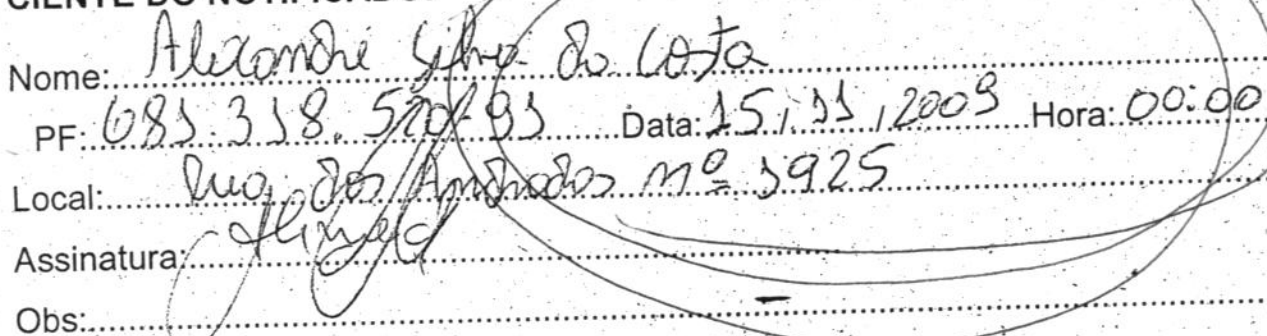 CIENTE DO NOTIFICADO
Nome: Alexandre Silva da Costa
PF: 681.318.520-91 Data: 15/11/2009 Hora: 00:00
Local: Rua dos Andradas nº 1925
Assinatura:
Obs: